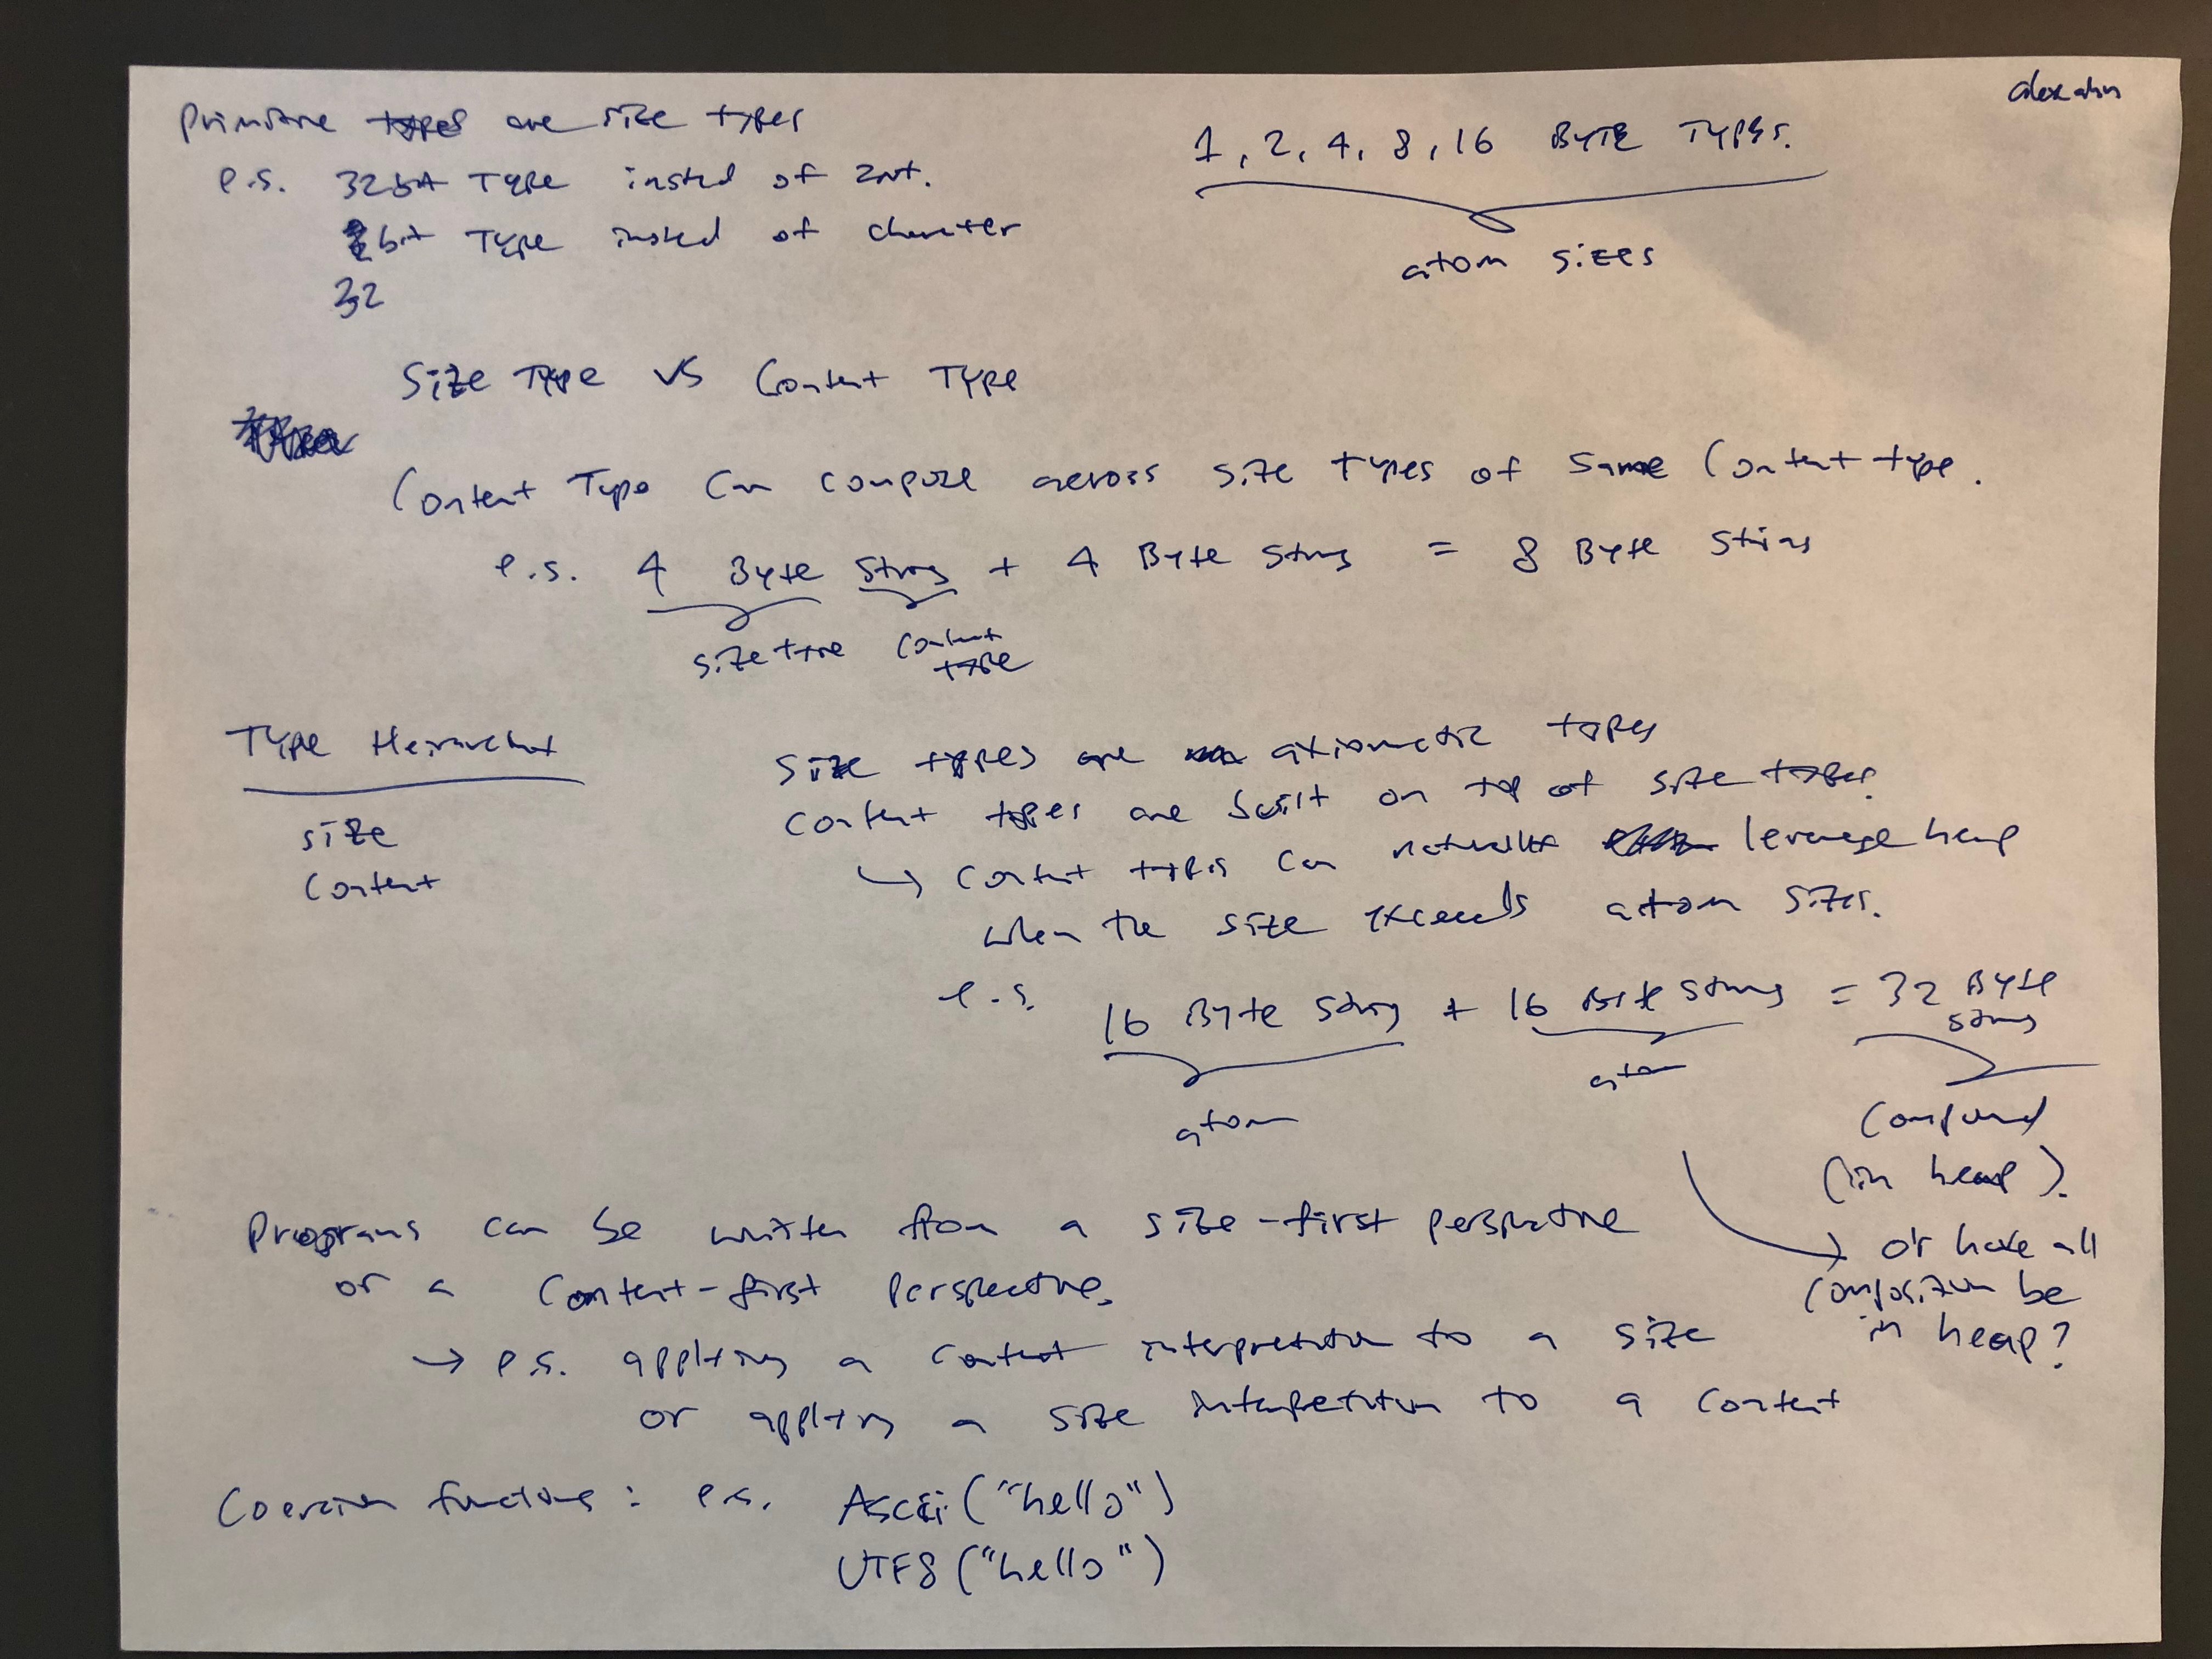 alex ahn
Primitive types are size types
e.g. 32bit Type insted of Int.
bit Type insted of character
32
1, 2, 4, 8, 16 BYTE TYPES.
atom sizes
Size Type VS Content Type
Content Type can compose across size types of same Content type.
e.g. 4 Byte String + 4 Byte String = 8 Byte String
size type content type
Type Heirarchy
size
Content
Size types are axiomatic types
content types are built on top of size types.
→ content types can naturally leverage heap
when the size exceeds atom sizes.
e.g. 16 Byte String + 16 Byte String = 32 Byte String
atom
atom
Compound
(in heap).
→ or have all
composition be
in heap?
Programs can be written from a size-first perspective
or a Content-first perspective.
→ e.g. applying a content interpretation to a size
or applying a size interpretation to a content
Coercion functions: e.g. Ascii("hello")
UTF8("hello")